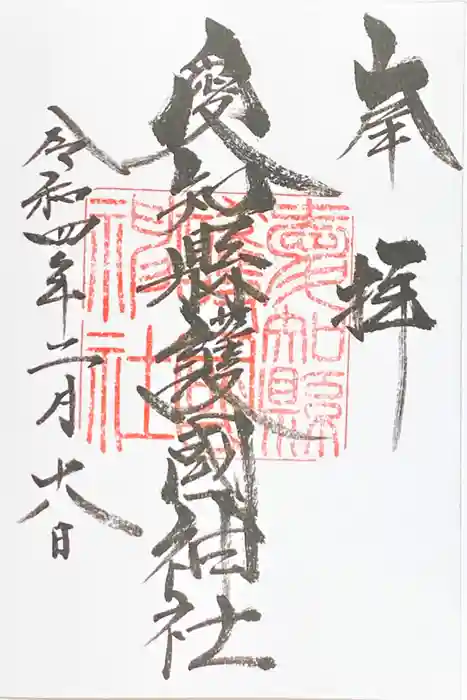 奉拝
愛知縣護國神社
令和四年二月十八日
愛知縣
護國神社